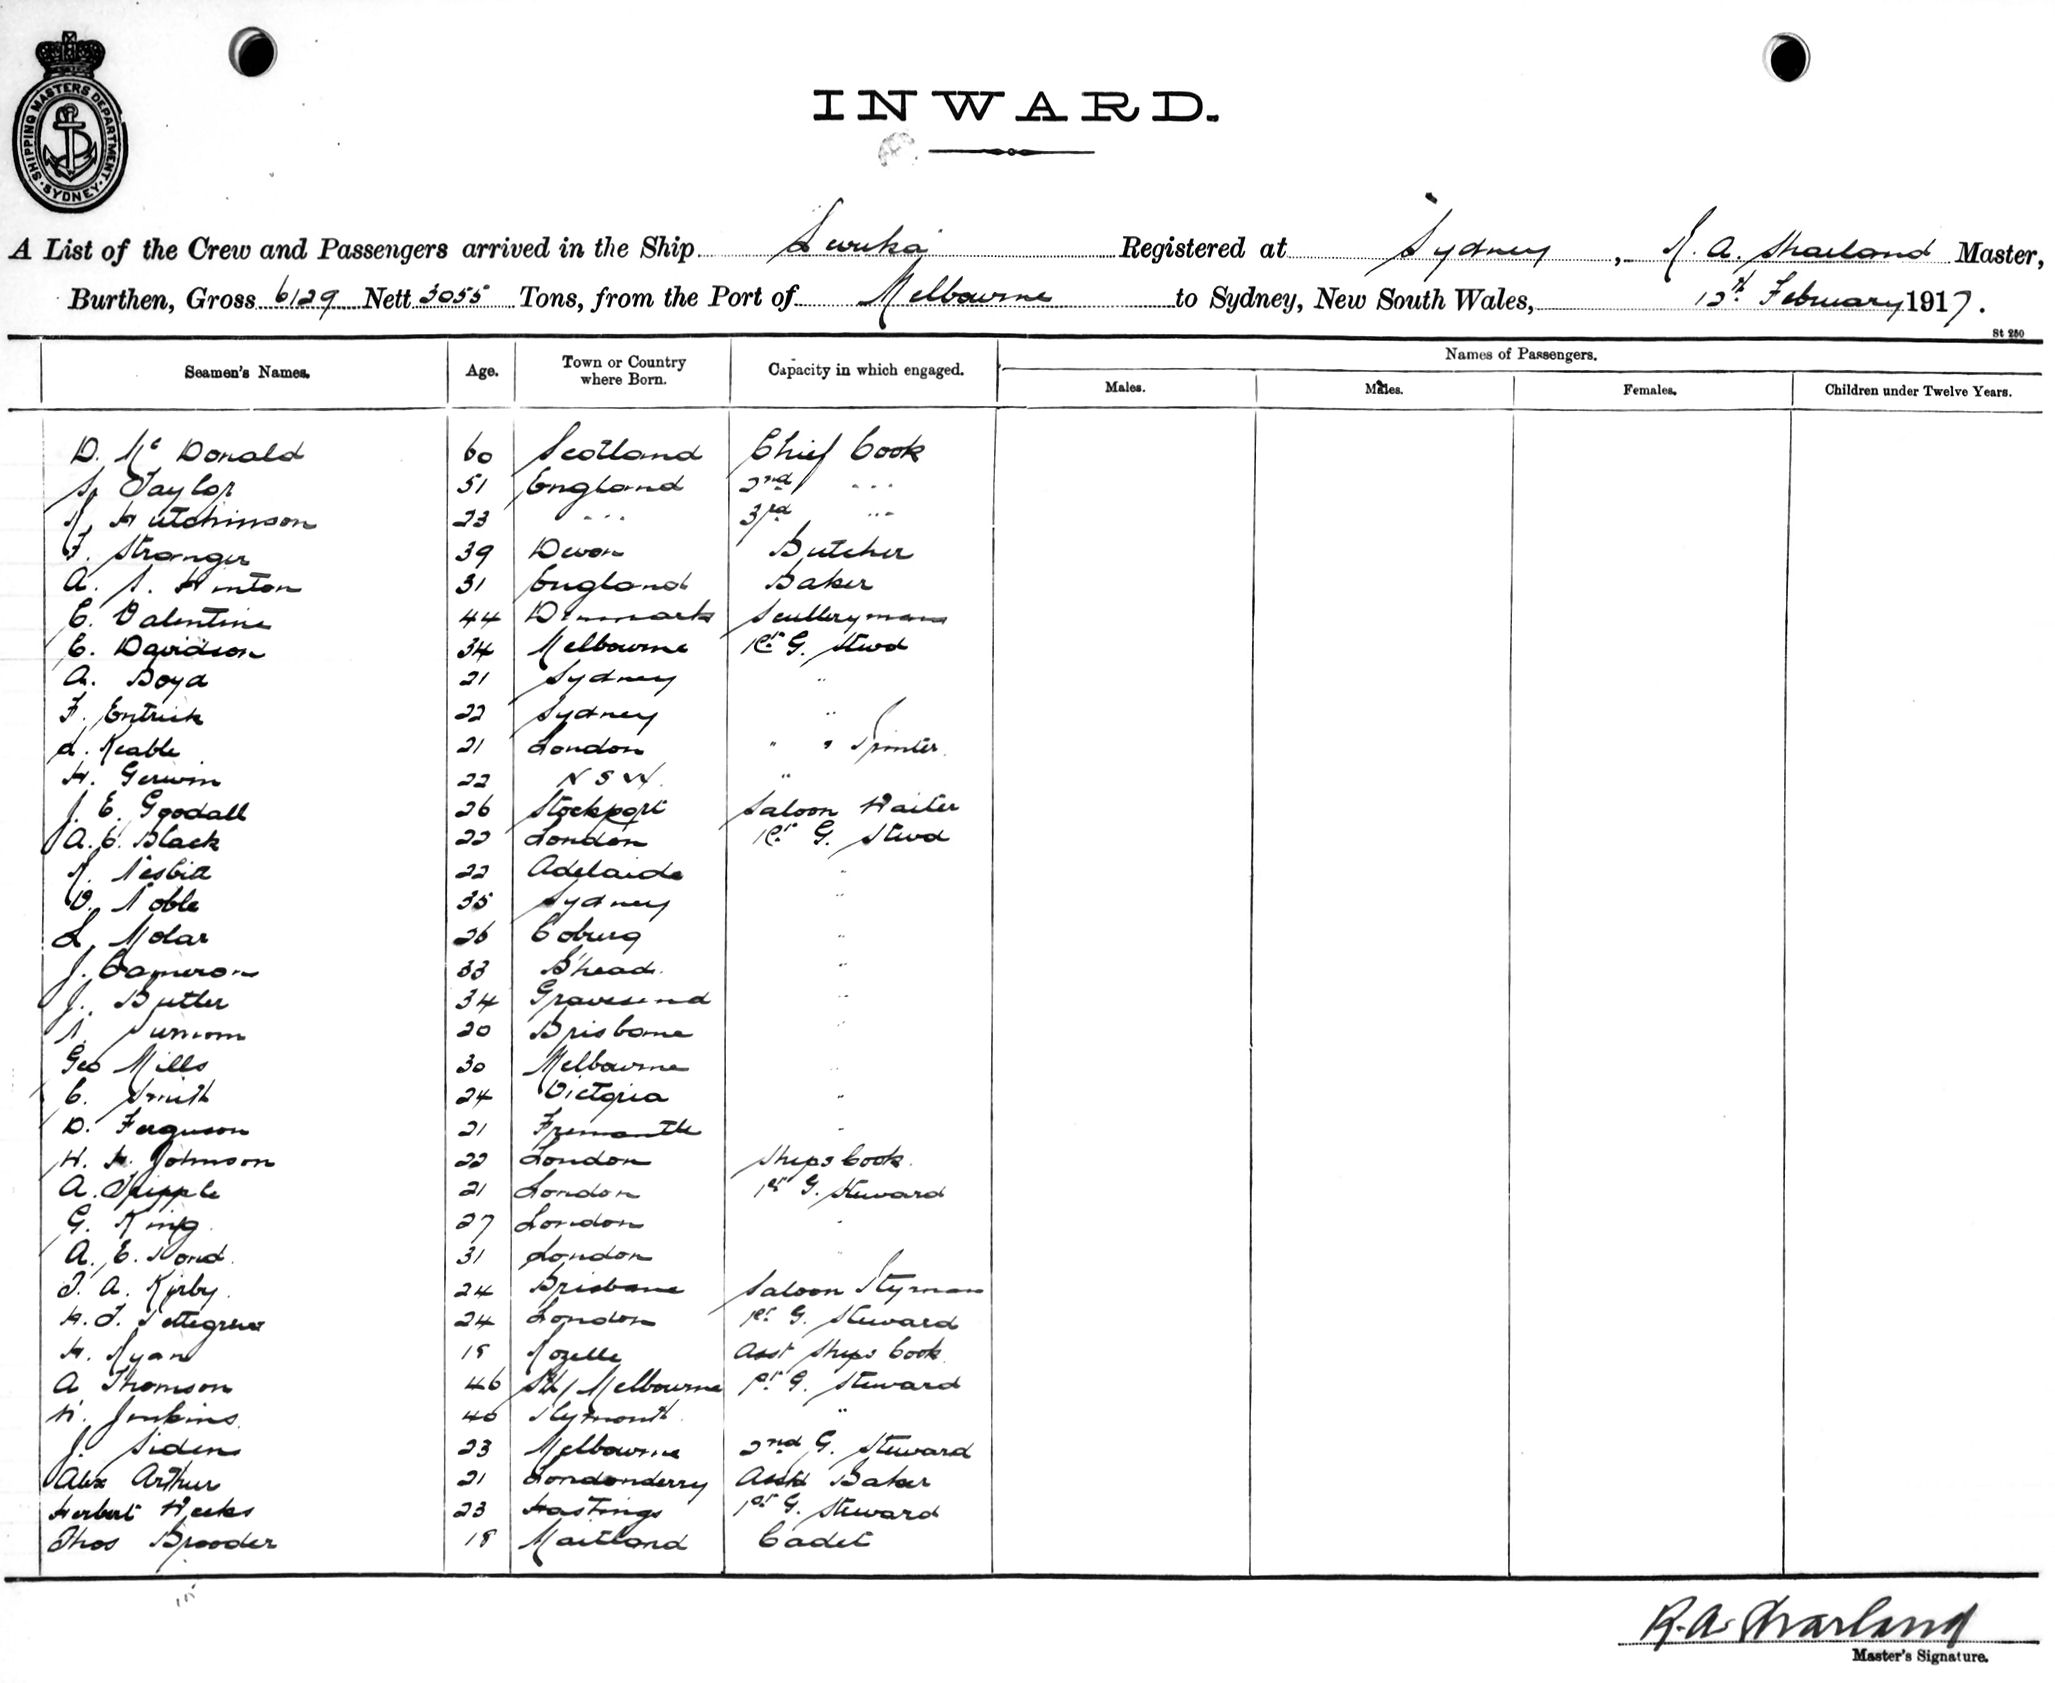 SHIPPING MASTERS DEPARTMENT. SYDNEY
INWARD.
A List of the Crew and Passengers arrived in the Ship Levuka Registered at Sydney, R. A. Sharland Master,
Burthen, Gross 6129 Nett 3055 Tons, from the Port of Melbourne to Sydney, New South Wales, 12th February 1917.
St 250
Seamen's Names. Age. Town or Country where Born. Capacity in which engaged. Names of Passengers.
Males. Males. Females. Children under Twelve Years.
D. McDonald 60 Scotland Chief Cook
S. Taylor 51 England 2nd "
R. Hutchinson 23 " 3rd "
F. Stranger 39 Devon Butcher
A. S. Hinton 31 England Baker
C. Valentine 44 Denmark Sculleryman
C. Davidson 34 Melbourne 1st G. Stwd
A. Boyd 21 Sydney "
F. Entrick 22 Sydney "
L. Keable 21 London " " Printer
H. Gerwin 22 N S W. "
J. E. Goodall 26 Stockport Saloon Waiter
A. C. Black 22 London 1st G. Stwd
R. Nesbitt 22 Adelaide "
D. Noble 35 Sydney "
L. Molar 26 Coburg "
J. Cameron 33 B'head. "
J. Butler 34 Gravesend "
20 Brisbane "
Geo Mills 30 Melbourne "
C. Smith 24 Victoria "
D. Ferguson 21 Fremantle "
H. H. Johnson 22 London Ships Cook.
A. Tripple 21 London 1st G. Steward
G. King 27 London "
A. E. Pond 31 London "
T. A. Kirby. 24 Brisbane Saloon
H. T. Pettegrew 24 London 1st G. Steward
H. Ryan 18 Rozelle Asst Ships Cook
A Thomson 46 Sth Melbourne 1st G. Steward
W. Jenkins. 40 Plymouth "
J. Sidens 23 Melbourne 2nd G. Steward
Alex Arthur 21 Londonderry Asst Baker
Herbert Weeks 23 Hastings 1st G. Steward
Thos Brooder 18 Maitland Cadet
R. A. Sharland
Master's Signature.